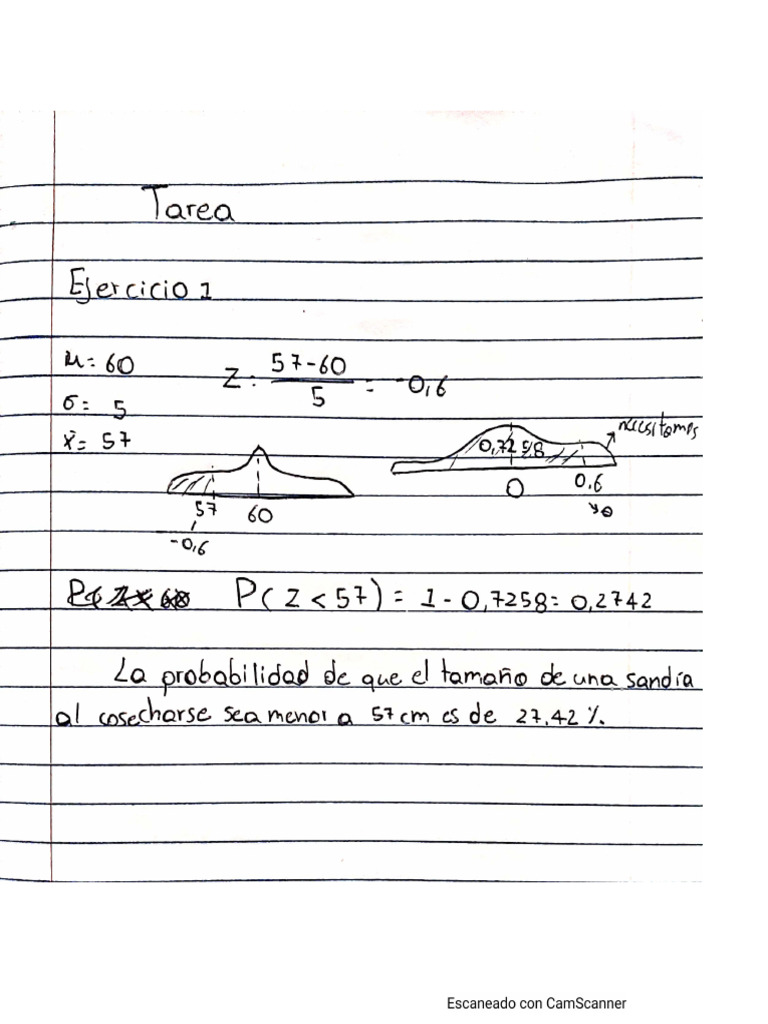 Tarea
Ejercicio 1
μ = 60
σ = 5
x̄ = 57
Z = 57-60 / 5 = -0,6
57 60
-0,6
0,7258
necesitamos
0 0,6
P(Z < 57) = 1 - 0,7258 = 0,2742
La probabilidad de que el tamaño de una sandía
al cosecharse sea menor a 57 cm es de 27,42 %.
Escaneado con CamScanner